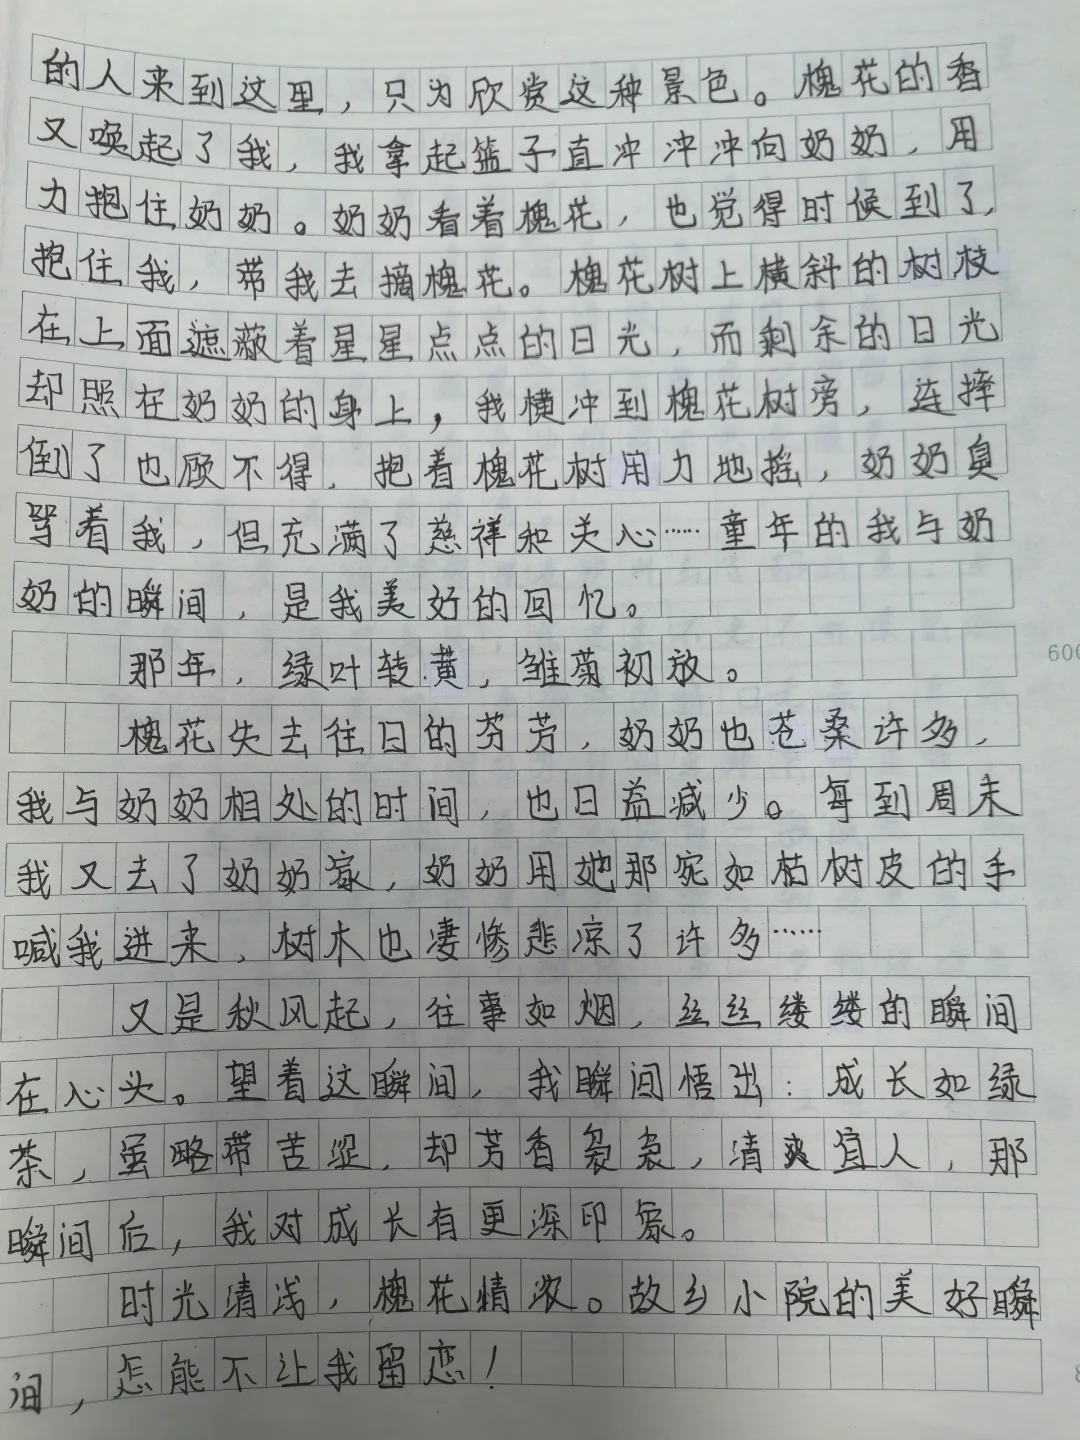 的人来到这里，只为欣赏这种景色。槐花的香
又唤起了我，我拿起篮子直冲冲冲向奶奶，用
力抱住奶奶。奶奶看着槐花，也觉得时候到了，
抱住我，带我去摘槐花。槐花树上横斜的树枝
在上面遮蔽着星星点点的日光，而剩余的日光
却照在奶奶的身上，我横冲到槐花树旁，连摔
倒了也顾不得，抱着槐花树用力地摇，奶奶臭
骂着我，但充满了慈祥和关心……童年的我与奶
奶的瞬间，是我美好的回忆。
那年，绿叶转黄，雏菊初放。
600
槐花失去往日的芬芳，奶奶也苍桑许多，
我与奶奶相处的时间，也日益减少。每到周末
我又去了奶奶家，奶奶用她那宛如枯树皮的手
喊我进来，树木也凄惨悲凉了许多……
又是秋风起，往事如烟，丝丝缕缕的瞬间
在心头。望着这瞬间，我瞬间悟出：成长如绿
茶，虽略带苦涩，却芳香袅袅，清爽宜人，那
瞬间后，我对成长有更深印象。
时光清浅，槐花情浓。故乡小院的美好瞬
间，怎能不让我留恋！